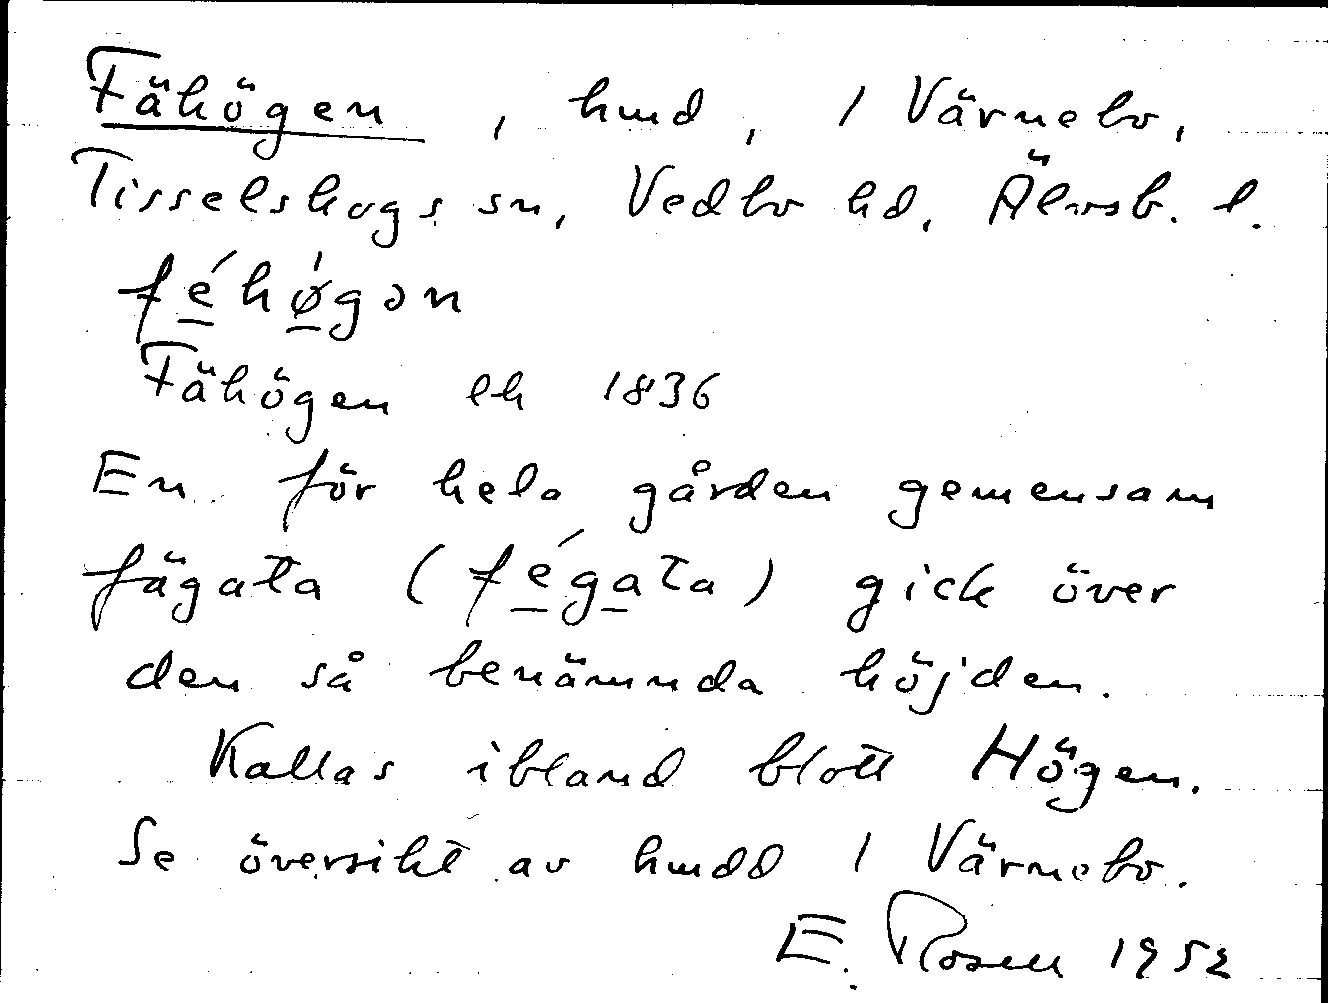 Fähögen, hmd, 1 Värnebo,
Tisselskogs sn, Vedbo hd, Älvsb. l.
fé̱hǿ̱gən
Fähögen lh 1836
En för hela gården gemensam
fägata (fé̱ga̱ta) gick över
den så benämnda höjden.
Kallas ibland blott Högen.
Se översikt av hmdd 1 Värnebo.
E. Rosell 1952